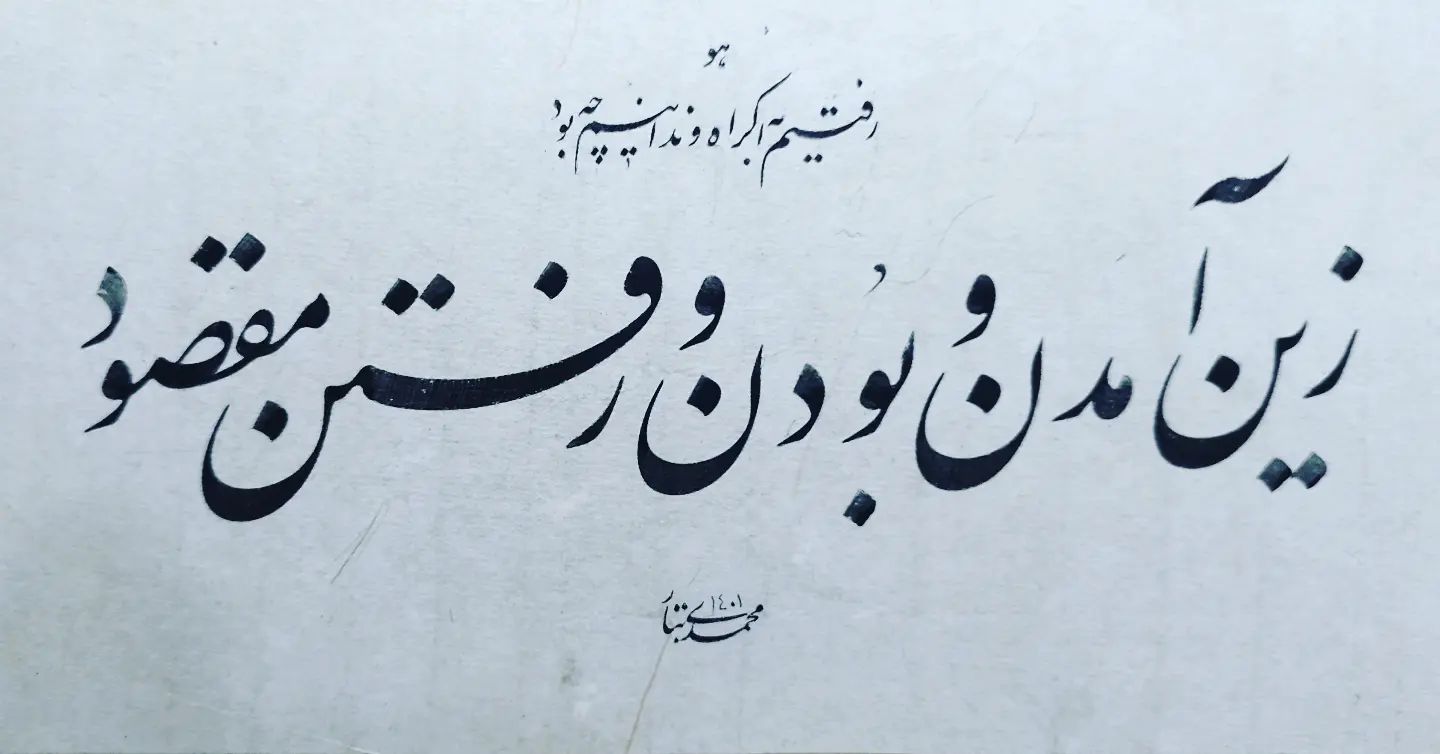 هو
رفتیم به اکراه و ندانیم چه بود
زین آمدن و بودن و رفتن مقصود
محمدی تبار ۱۴۰۱